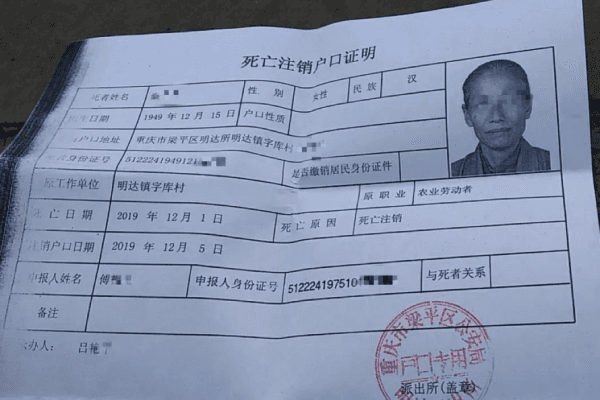 死亡注销户口证明
死者姓名 性 别 女性 民 族 汉
生日期 1949 年 12 月 15 日 户口性质
户口地址 重庆市梁平区明达所明达镇字库村
身份证号 512224194912 是否缴销居民身份证件
原工作单位 明达镇字库村 原 职 业 农业劳动者
死 亡 日 期 2019 年 12 月 1 日 死 亡 原 因 死亡注销
注销户口日期 2019 年 12 月 5 日
申报人姓名 傅 申报人身份证号 512224197510 与死者关系
备注
办人: 吕艳
重庆市梁平区公安局
户口专用
派出所(盖章)